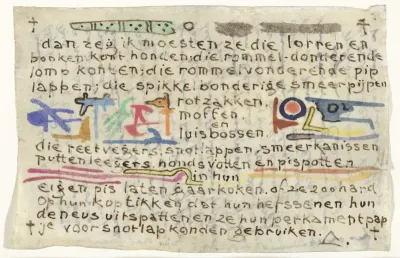 dan zeg ik moesten ze die lorren en
bonken. kont honden; die rommel-donderende
jomp konten; die rommel. vonderende pip
lappen; die spikkel. bonderige smeerpijpen
rotzakken,
moffen
en
luisbossen,
die reetvegers, snotlappen, smeerkanissen
puttenleegers, hondsvotten en pispotten
in hun
eigen pis laten gaarkoken. of ze zoo hard
op hun koptikken dat hun herssenen hun
de neus uitspatten en ze hun perkament pap
je voor snotlap konden gebruiken.